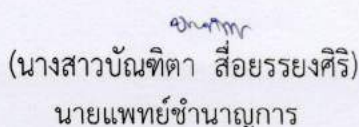 (นางสาวบัณฑิตา สื่อยรรยงศิริ)
นายแพทย์ชำนาญการ